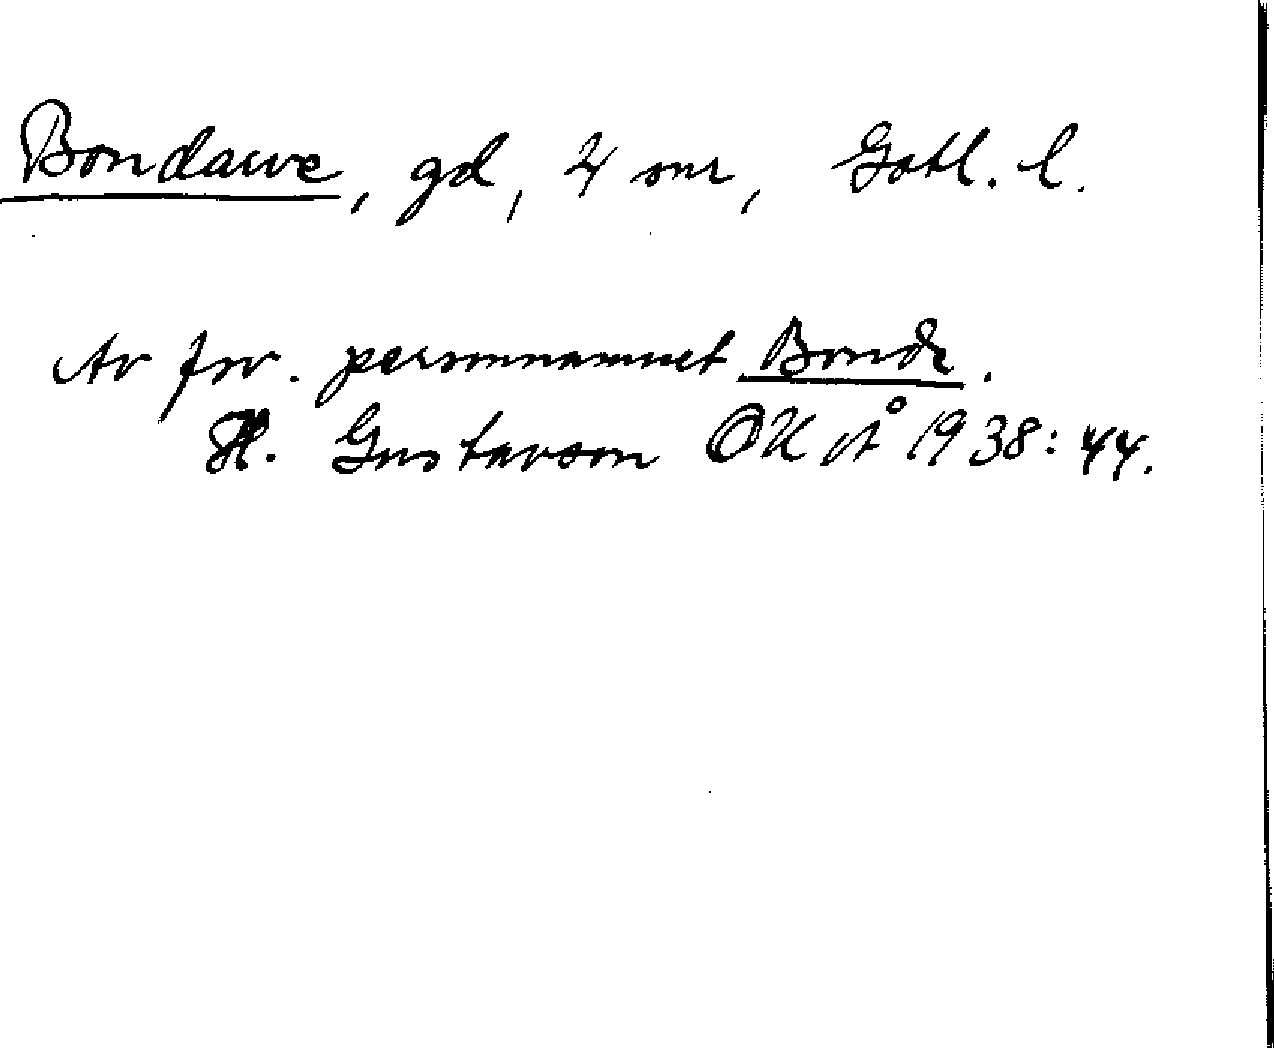 Bondarve, gd, 4 snr, Gotl. l.
Av fsv. personnamnet Bonde.
H. Gustavson OUÅ 1938: 44.